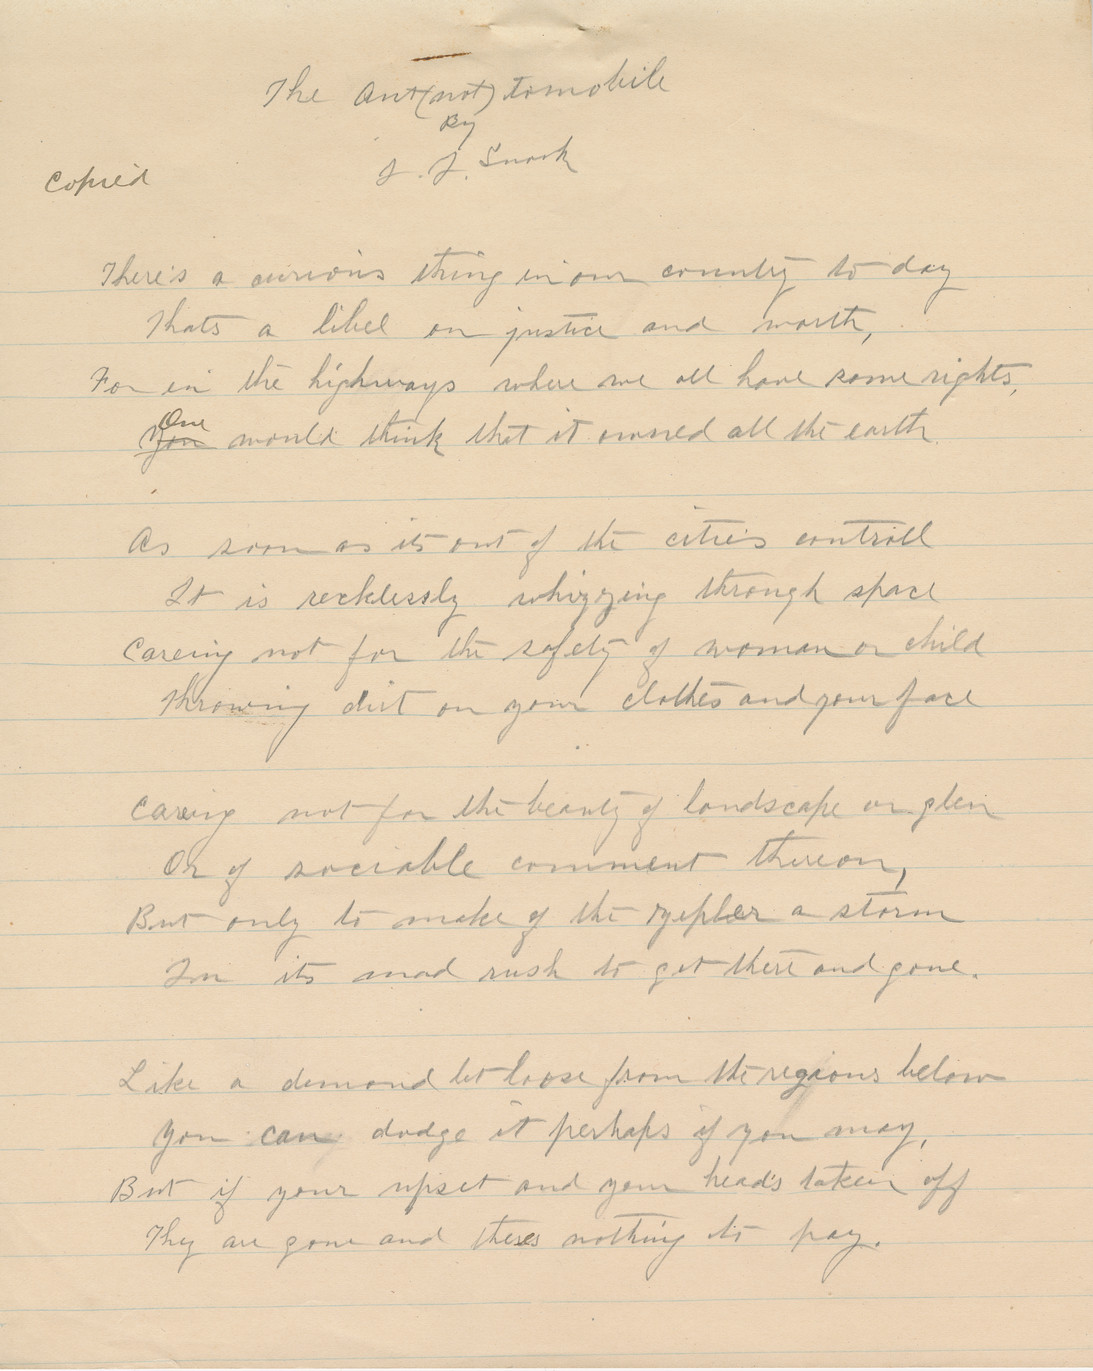 The Aut(not)tomobile
By
J. J. Snook
Copied
There's a curious thing in our country to day
Thats a libel on justice and worth,
For in the highways where we all have some rights,
One
You would think that it owned all the earth.
As soon as its out of the citie's controll
It is recklessly whizzing through space
Careing not for the safety of woman or child
Throwing dirt on your clothes and your face
Careing not for the beauty of landscape or glen
Or of sociable comment thereon,
But only to make of the a storm
In its mad rush to get there and gone.
Like a demond let loose from the regions below
You can dodge it perhaps if you may,
But if your upset and your head's taken off
They are gone and theres nothing to pay.